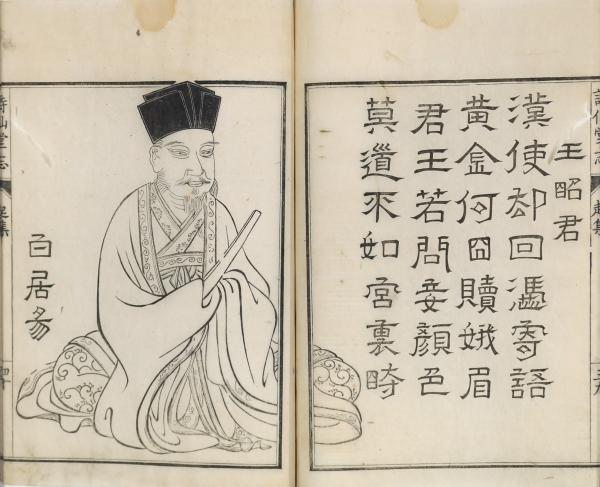 詩仙堂志
起集
王昭君
漢使却回憑寄語
黃金何囧贖娥眉
君王若問妾顏色
莫道不如宮裏時
白居易
詩仙堂志
起集